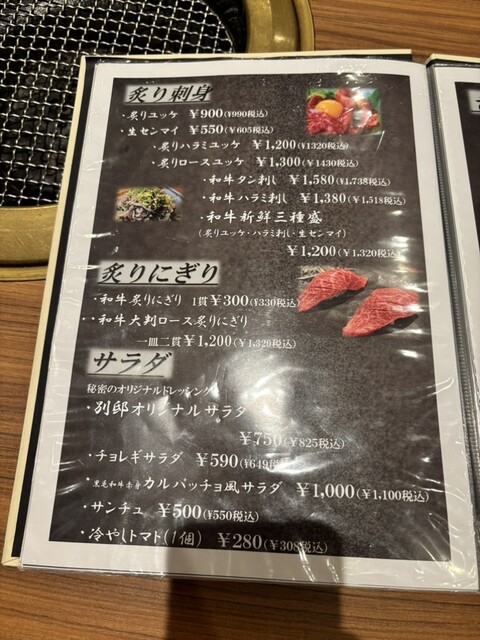 炙り刺身
・炙りユッケ ¥900(¥990税込)
・生センマイ ¥550(¥605税込)
・炙りハラミユッケ ¥1,200(¥1320税込)
・炙りロースユッケ ¥1,300(¥1430税込)
・和牛タン刺し ¥1,580(¥1,738税込)
・和牛ハラミ刺し ¥1,380(¥1,518税込)
・和牛新鮮三種盛
(炙りユッケ・ハラミ刺し・生センマイ)
¥1,200(¥1,320税込)
炙りにぎり
・和牛炙りにぎり 1貫¥300(¥330税込)
・・和牛大判ロース炙りにぎり
一皿二貫¥1,200(¥1,320税込)
サラダ
秘密のオリジナルドレッシング
・別邸オリジナルサラダ
¥750(¥825税込)
・チョレギサラダ ¥590(¥649税込)
・黒毛和牛赤身カルパッチョ風サラダ ¥1,000(¥1,100税込)
・サンチュ ¥500(¥550税込)
・冷やしトマト(1個) ¥280(¥308税込)